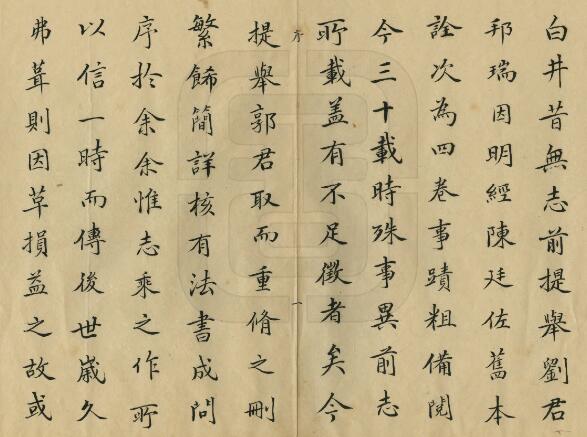 白井昔無志前提舉劉君
邦瑞因明經陳廷佐舊本
詮次為四卷事蹟粗備閱
今三十載時殊事異前志
所載盖有不足徵者矣今
序
一
提舉郭君取而重脩之刪
繁餙簡詳核有法書成問
序於余余惟志乘之作所
以信一時而傳後世歲久
弗葺則因革損益之故或